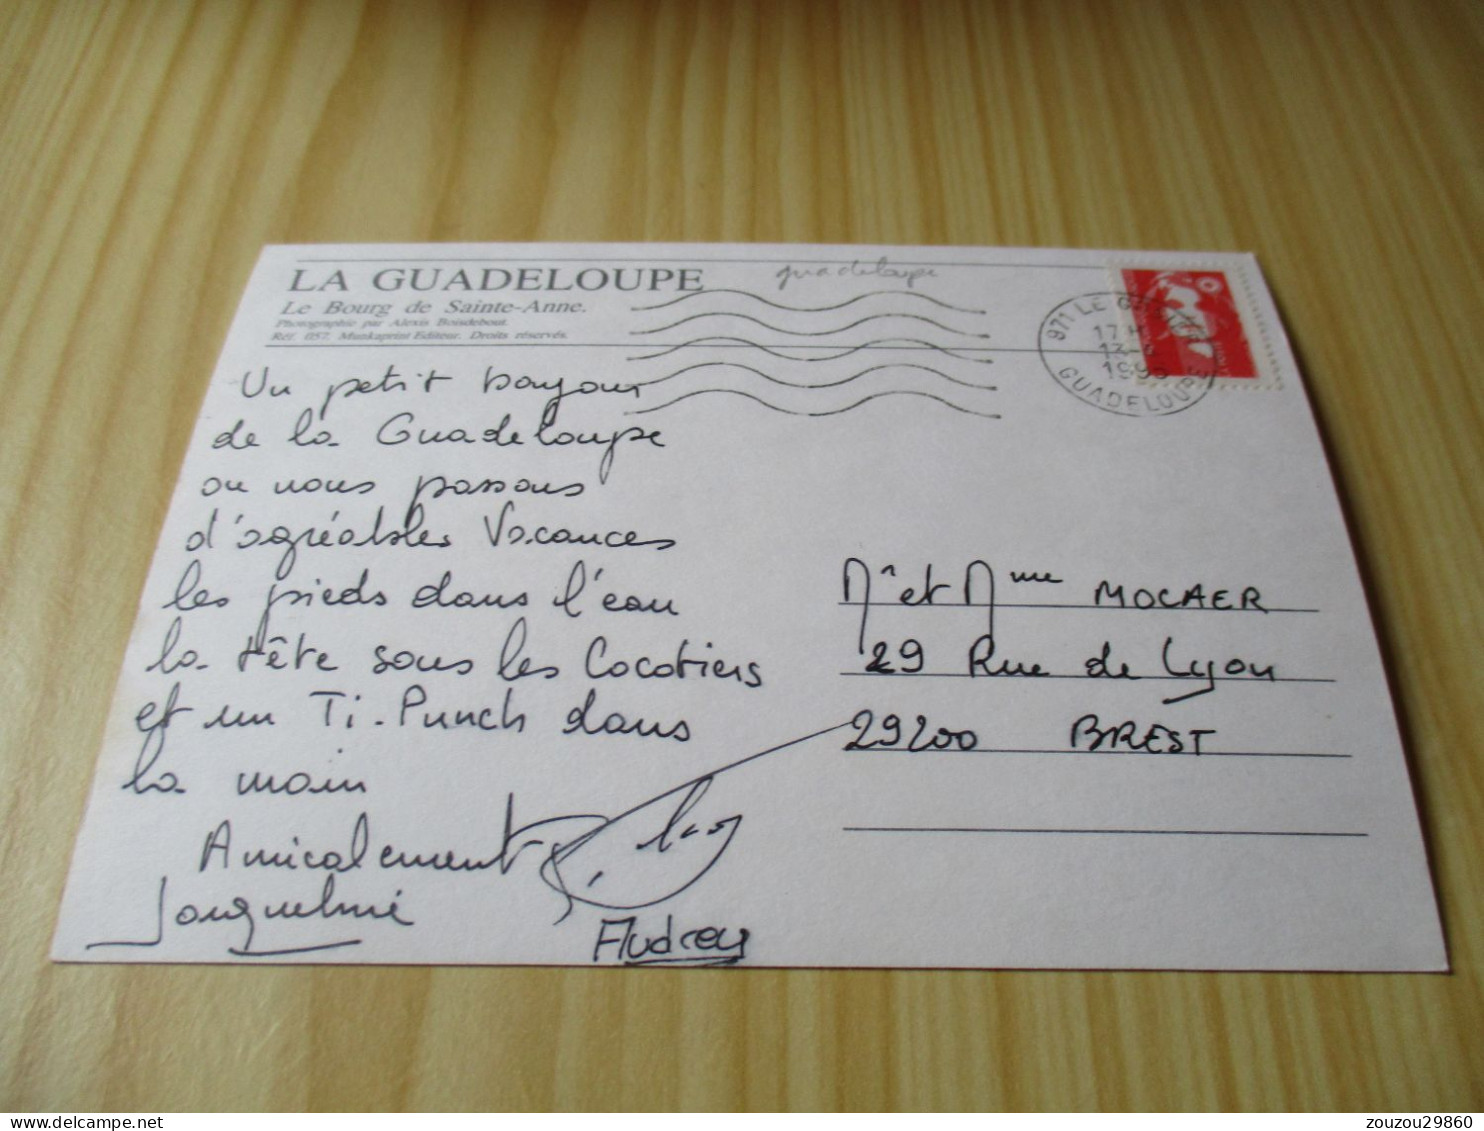 LA GUADELOUPE
Le Bourg de Sainte-Anne.
Photographie par Alexis Boisdebout.
Réf. 057. Munkaprint Editeur. Droits réservés.
guadeloupe
971 LE
17 H
GUADELOUPE
Un petit bonjour
de la Guadeloupe
ou nous passons
d'agréables Vacances
les pieds dans l'eau
la tête sous les Cocotiers
et un Ti-Punch dans
la main
Amicalement
Jacqueline
Audrey
Mr et Mme MOCAER
29 Rue de Lyon
29200 BREST
zouzou29860